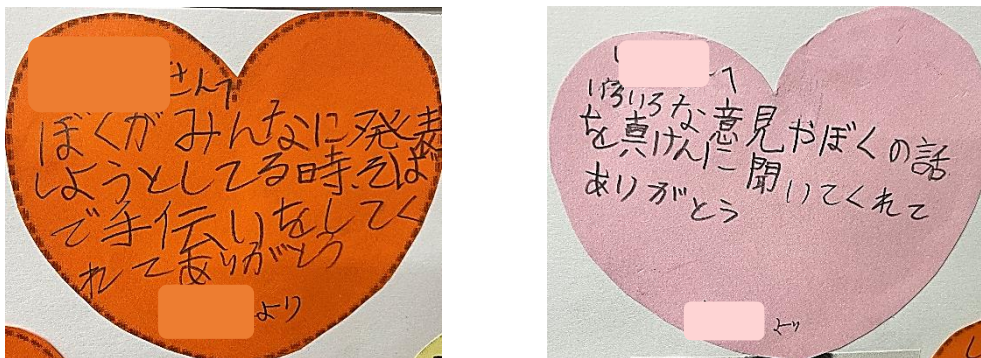 さんへ
ぼくがみんなに発表
しようとしてる時、そば
で手伝いをしてく
れてありがとう
より
へ
いろいろな意見やぼくの話
を真けんに聞いてくれて
ありがとう
より